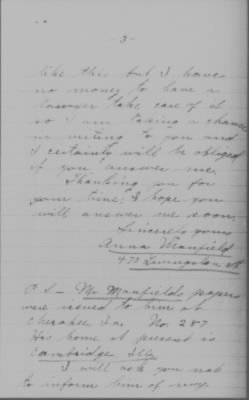 -3-
like this but I have
no money to have a
lawyer take care of it
so I am taking a chance
in writing to you and
I certainly will be obliged
if you answer me.
Thanking you for
your time, I hope you
will answer me soon.
Sincerely yours
Anna Manfield
473 Livingston
P.S- Mr Manfields papers
were issued to him at
Cherokee, Ia. No. 287
His home at present is
Cambridge, Ill.
I will ask you not
to inform him of my